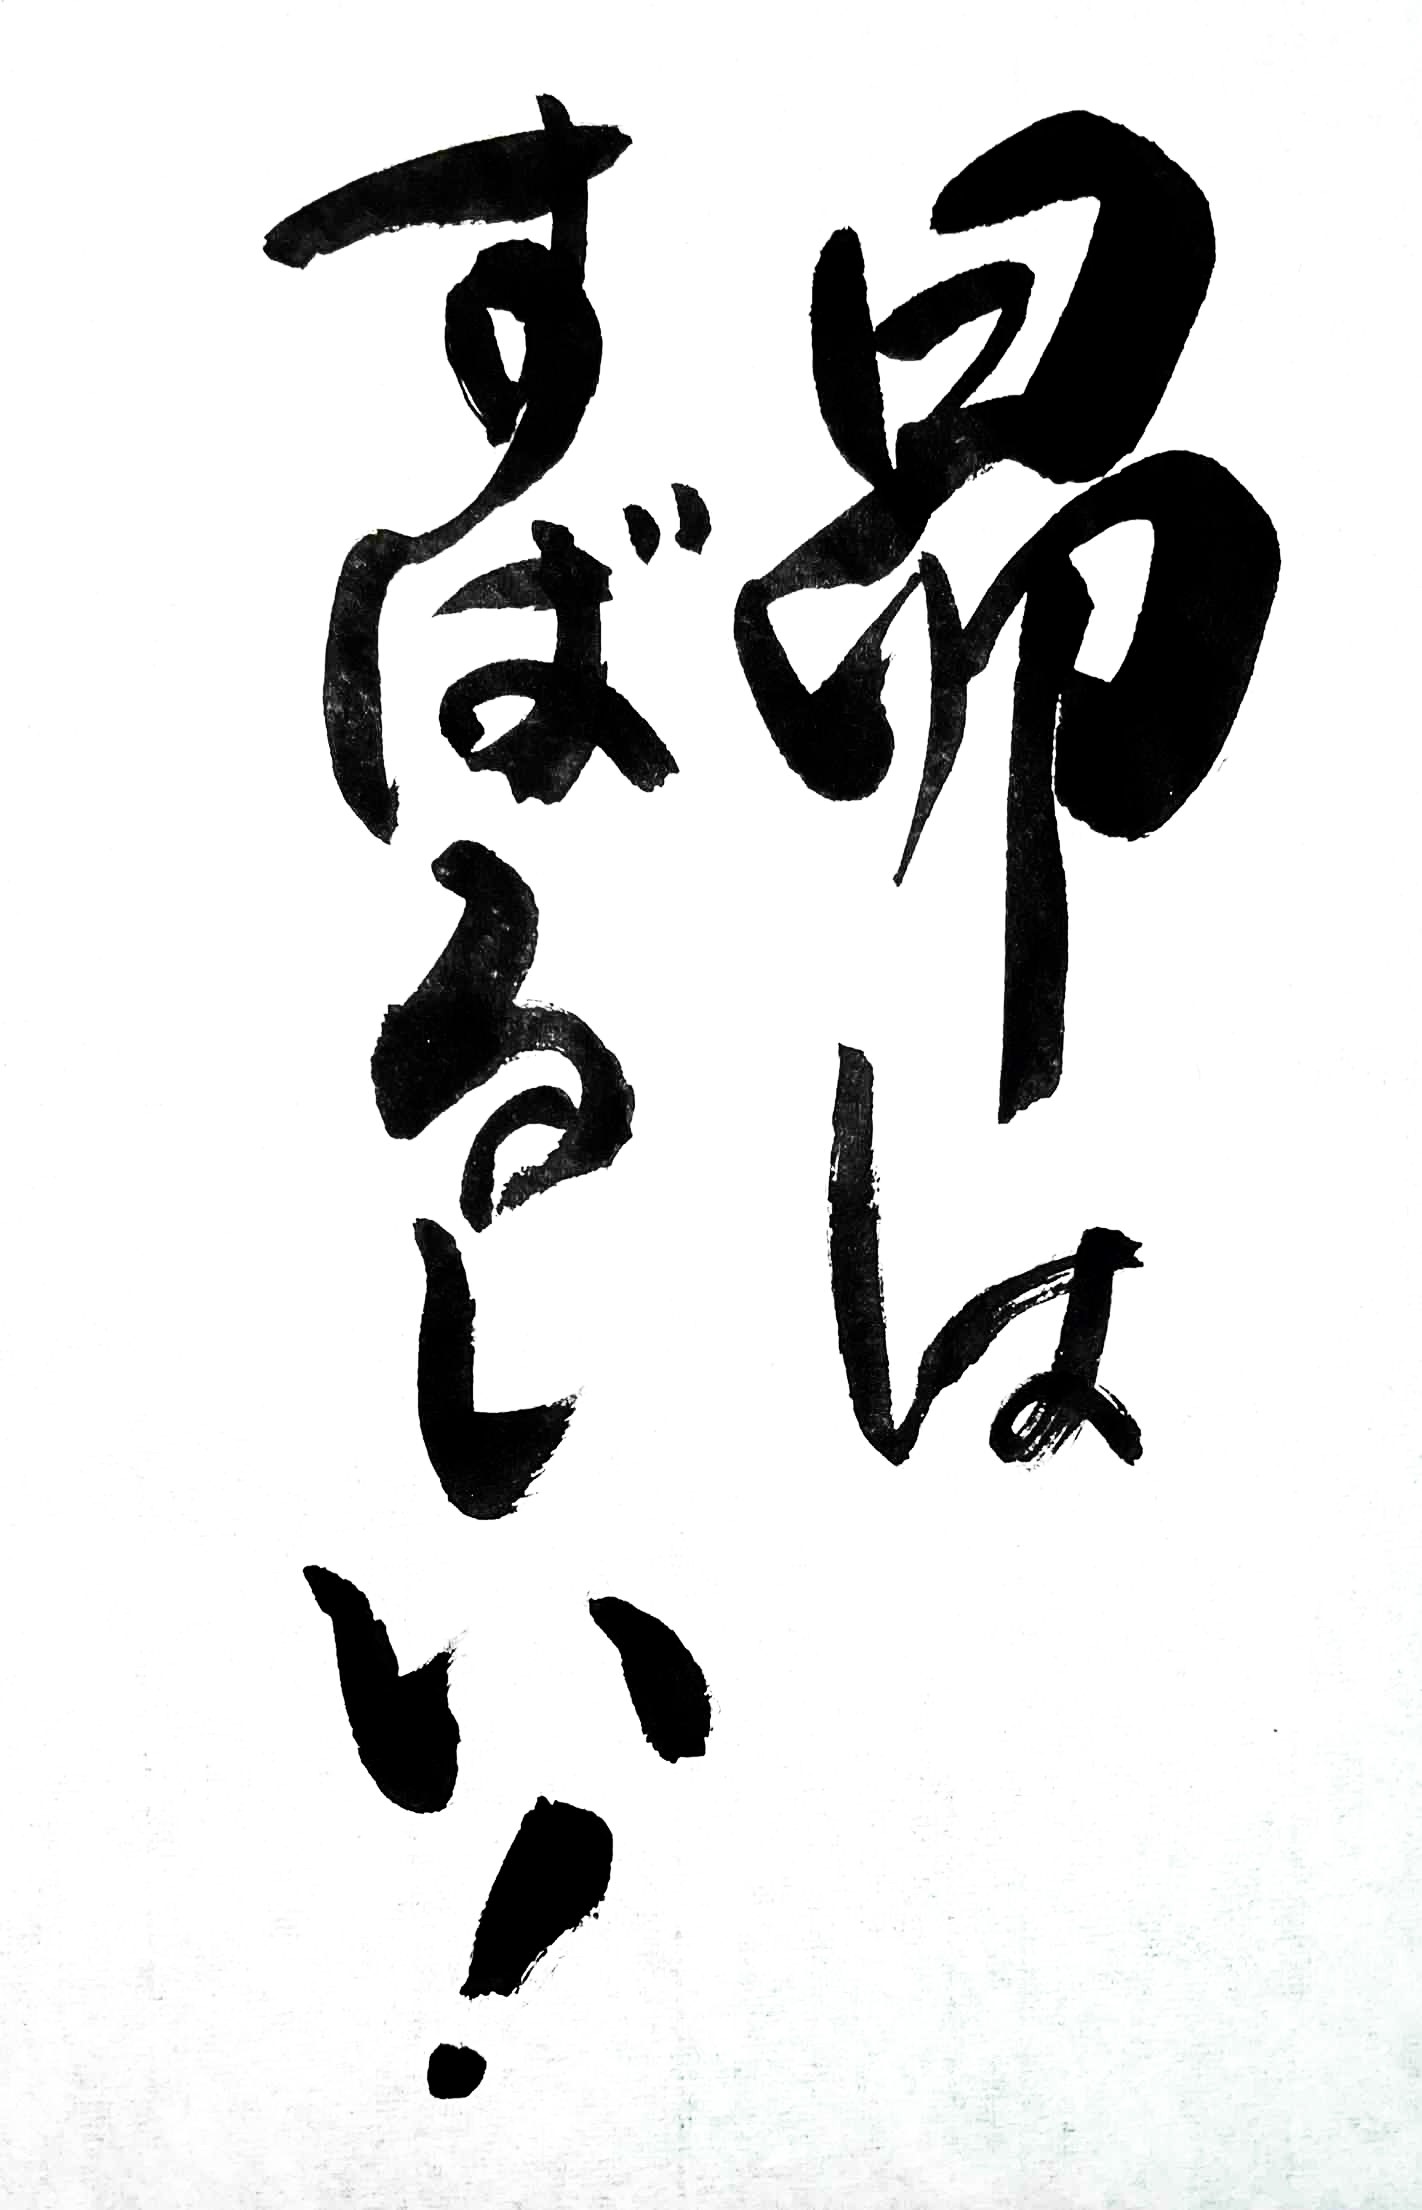 昴は
すばるしい！